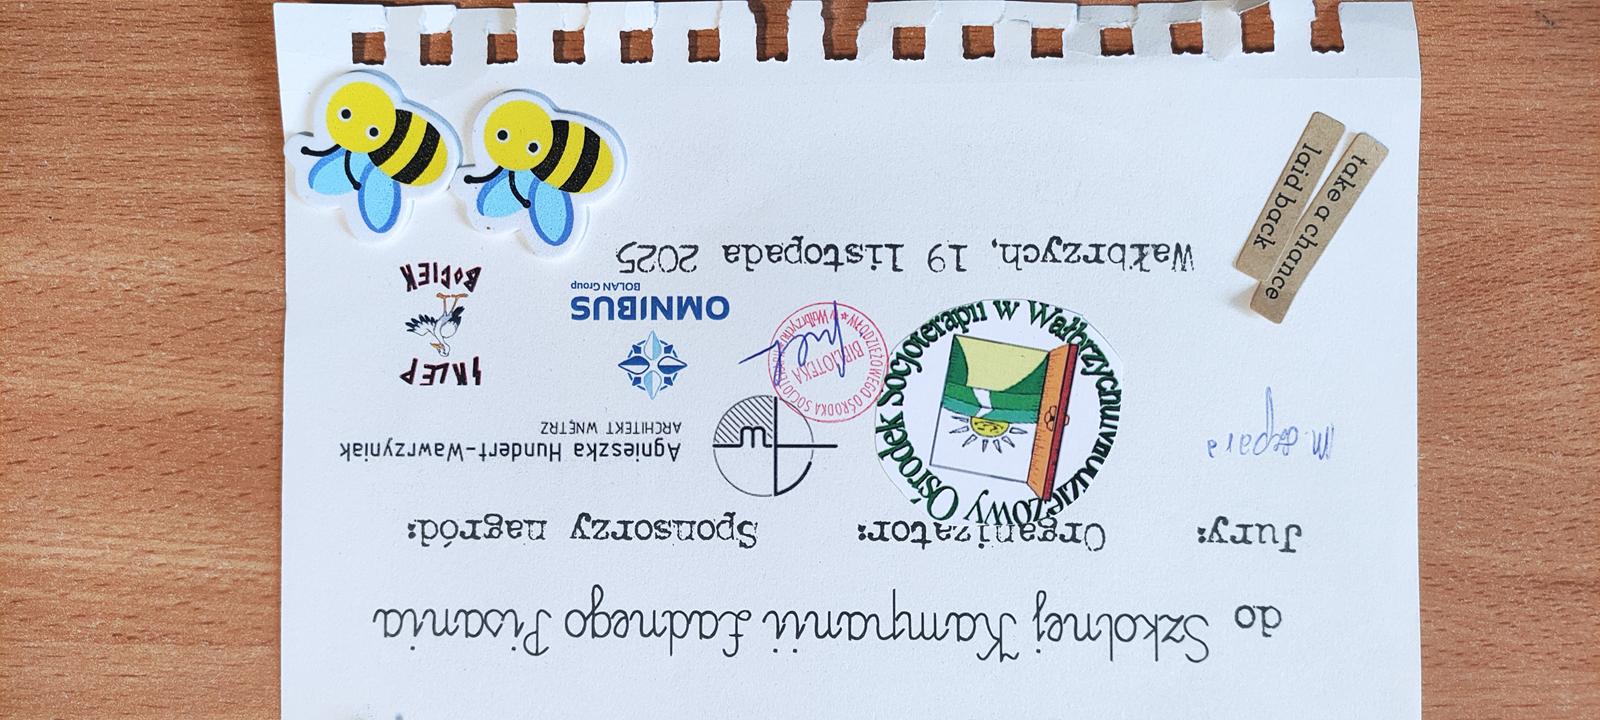 do Szkolnej Kampanii Ładnego Pisania
Jury:
Organizator:
Sponsorzy nagród:
Młodzieżowy Ośrodek Socjoterapii w Wałbrzychu
BIBLIOTEKA
Agnieszka Hundert-Wawrzyniak
ARCHITEKT WNĘTRZ
SKLEP
BOCIEK
OMNIBUS
BOLAN Group
Wałbrzych, 19 listopada 2025
take a chance
laid back